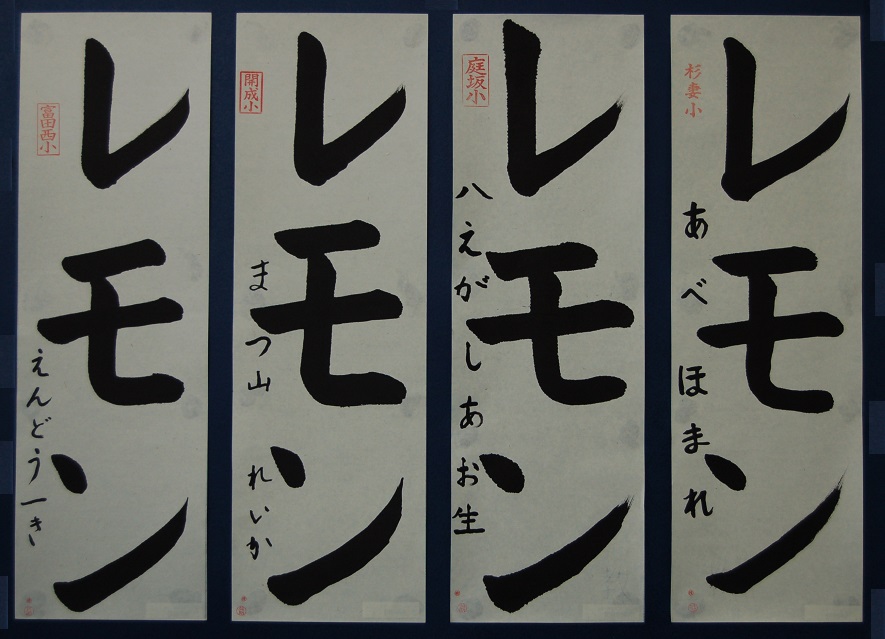 レモン
杉妻小
あべほまれ
レモン
庭坂小
八えがしあお生
レモン
開成小
まつ山 れいか
レモン
富田西小
えんどう一き